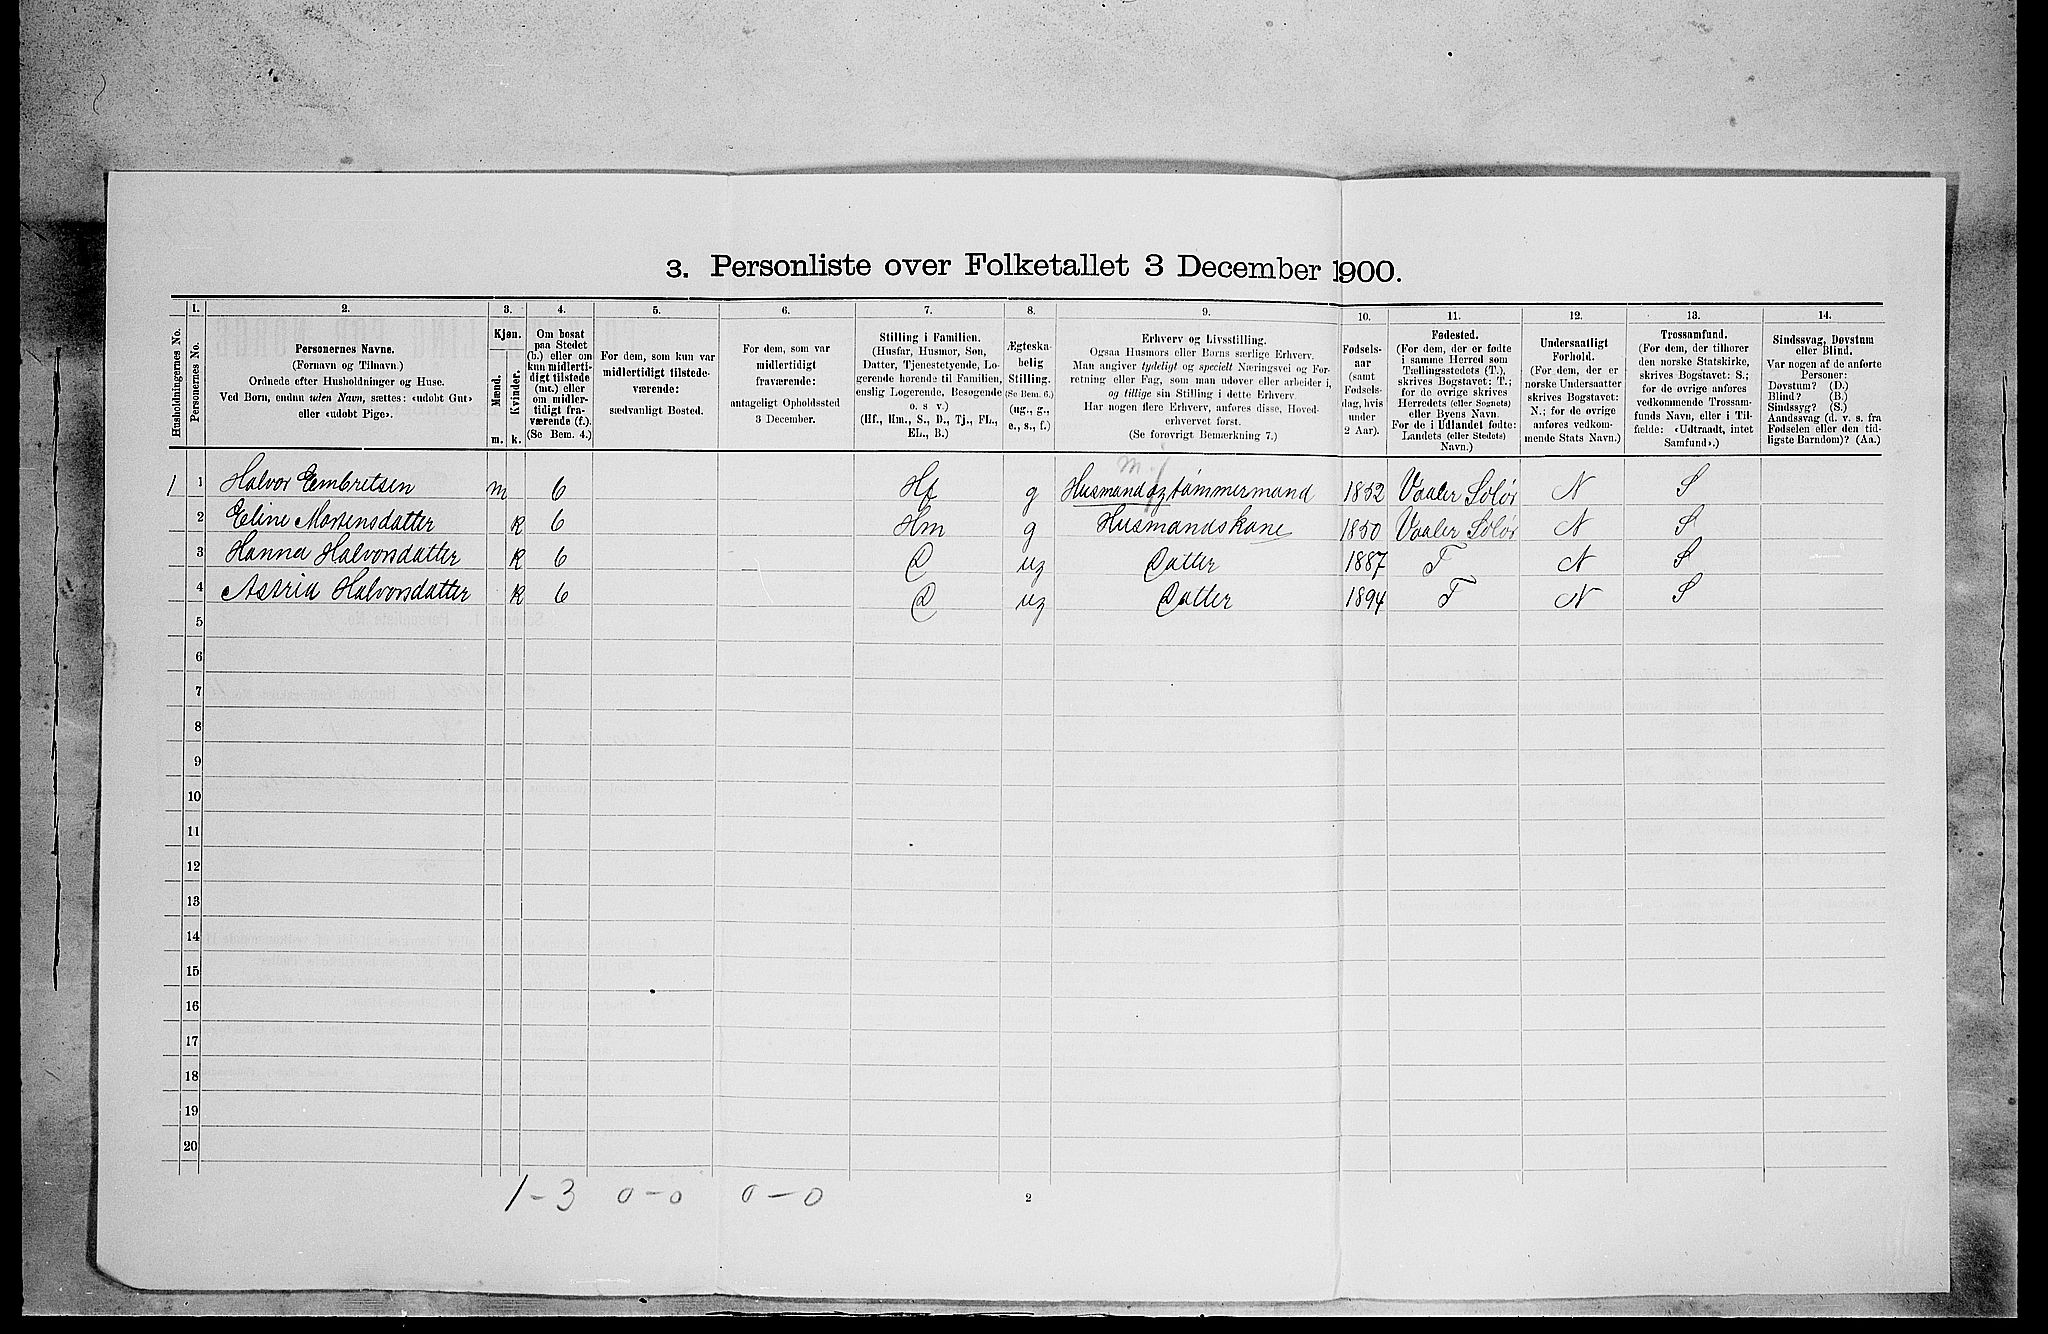 3. Personliste over Folketallet 3 December 1900.
Husholdningernes No.
1.
Personernes No.
2.
Personernes Navne.
(Fornavn og Tilnavn.)
Ordnede efter Husholdninger og Huse.
Ved Børn, endnu uden Navn, sættes: «udøbt Gut»
eller «udøbt Pige».
3.
Kjøn.
Mænd.
Kvinder.
m. k.
4.
Om bosat
paa Stedet
(b.) eller om
kun midlerti-
digt tilstede
(mt.) eller
om midler-
tidigt fra-
værende (f.).
(Se Bem. 4.)
5.
For dem, som kun var
midlertidigt tilstede-
værende:
sædvanligt Bosted.
6.
For dem, som var
midlertidigt
fraværende:
antageligt Opholdssted
3 December.
7.
Stilling i Familien.
(Husfar, Husmor, Søn,
Datter, Tjenestetyende, Lo-
gerende hørende til Familien,
enslig Logerende, Besøgende
o. s. v.)
(Hf., Hm., S., D., Tj., FL.,
EL., B.)
8.
Ægteska-
belig
Stilling.
(Se Bem. 6.)
(ug., g.,
e., s., f.)
9.
Erhverv og Livsstilling.
Ogsaa Husmors eller Børns særlige Erhverv.
Man angiver tydeligt og specielt Næringsvei og For-
retning eller Fag, som man udøver eller arbeider i,
og tillige sin Stilling i dette Erhverv.
Har nogen flere Erhverv, anføres disse, Hoved-
erhvervet først.
(Se forøvrigt Bemærkning 7.)
10.
Fødsels-
aar
(samt
Fødsels-
dag, hvis
under
2 Aar).
11.
Fødested.
(For dem, der er fødte
i samme Herred som
Tællingsstedets (T.),
skrives Bogstavet: T.;
for de øvrige skrives
Herredets (eller Sognets)
eller Byens Navn.
For de i Udlandet fødte:
Landets (eller Stedets)
Navn.)
12.
Undersaatligt
Forhold.
(For dem, der er
norske Undersaatter
skrives Bogstavet:
N.; for de øvrige
anføres vedkom-
mende Stats Navn.)
13.
Trossamfund.
(For dem, der tilhører
den norske Statskirke,
skrives Bogstavet: S.;
for de øvrige anføres
vedkommende Trossam-
funds Navn, eller i Til-
fælde: «Udtraadt, intet
Samfund».)
14.
Sindssvag, Døvstum
eller Blind.
Var nogen af de anførte
Personer:
Døvstum? (D.)
Blind? (B.)
Sindssyg? (S.)
Aandssvag (d. v. s. fra
Fødselen eller den tid-
ligste Barndom)? (Aa.)
1 1 Halvor Embretsen m b Hf g Husmand og tømmermand 1852 Vaaler Solør N S
2 Eline Mortensdatter k b Hm g Husmandskone 1850 Vaaler Solør N S
3 Hanna Halvorsdatter k b D ug Datter 1887 T N S
4 Astrid Halvorsdatter k b D ug Datter 1894 T N S
5
6
7
8
9
10
11
12
13
14
15
16
17
18
19
20
1-3 0-0 0-0
2